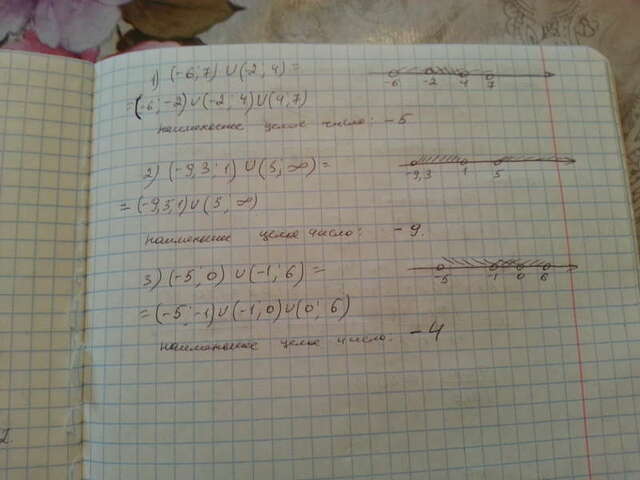 1) (-6; 7) ∪ (-2; 4) =
-6 -2 4 7
= (-6; -2) ∪ (-2; 4) ∪ (4; 7)
наименьшее целое число: -5
2) (-9,3; 1) ∪ (5; ∞) =
-9,3 1 5
= (-9,3; 1) ∪ (5; ∞)
наименьшее целое число: -9.
3) (-5; 0) ∪ (-1; 6) =
-5 -1 0 6
= (-5; -1) ∪ (-1; 0) ∪ (0; 6)
наименьшее целое число: -4